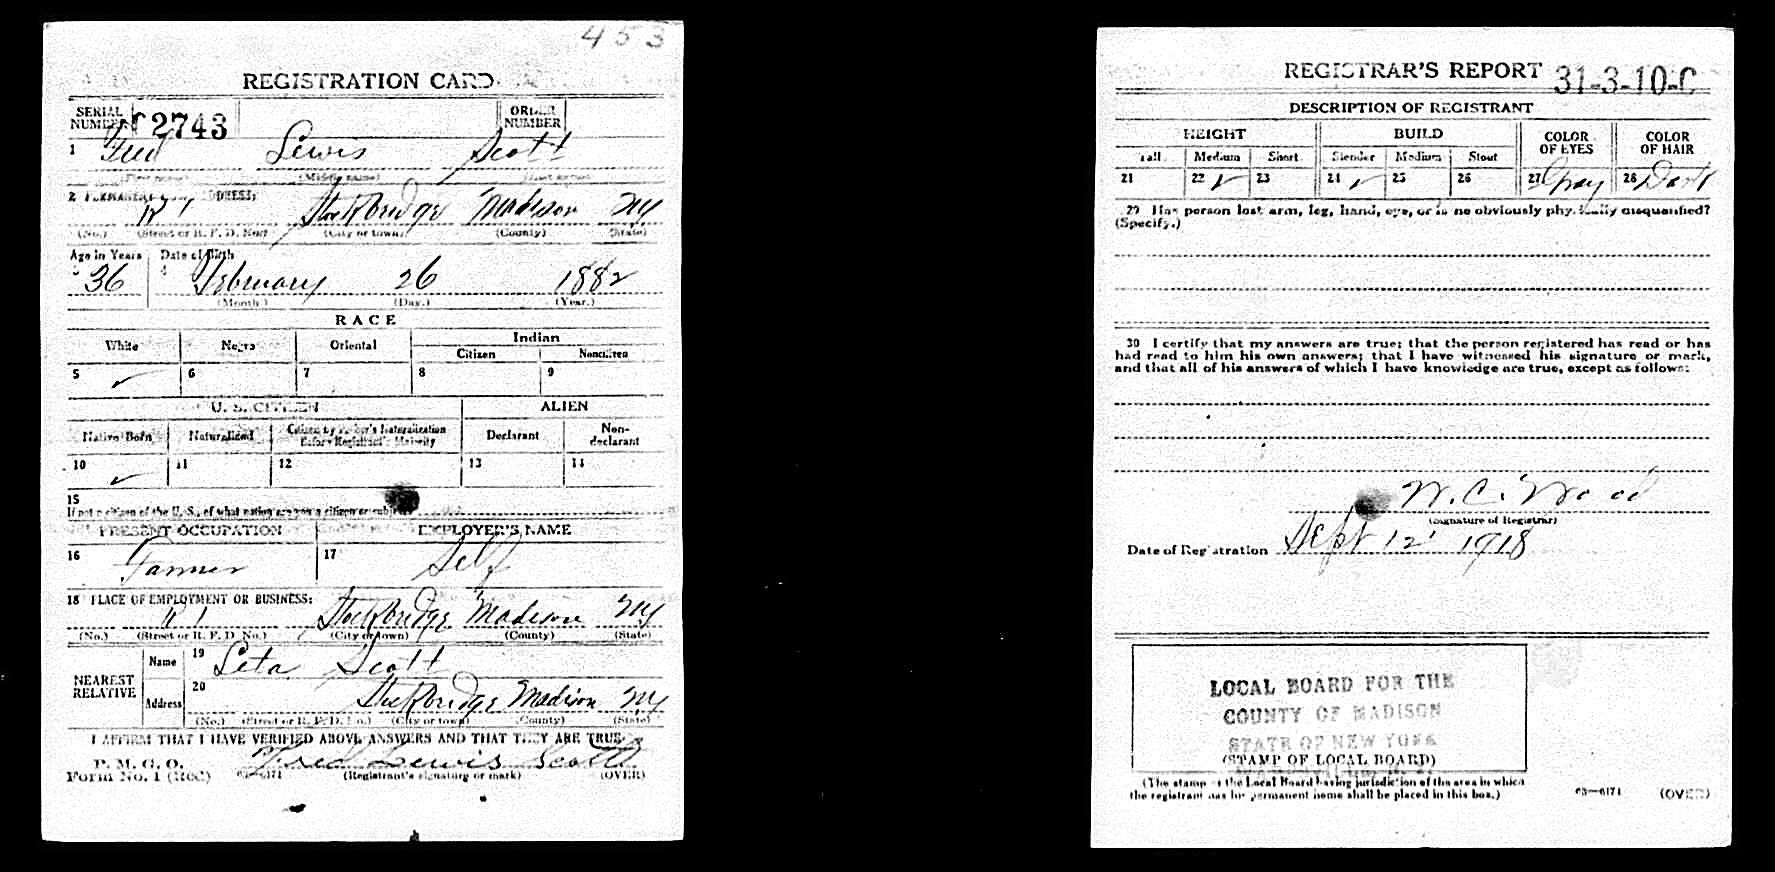 453
REGISTRATION CARD
SERIAL NUMBER 2743 ORDER NUMBER
1 Fred Lewis Scott
(First name) (Middle name) (Last name)
2 PERMANENT HOME ADDRESS:
R 1 Stockbridge Madison NY
(No.) (Street or R. F. D. No.) (City or town) (County) (State)
Age in Years Date of Birth
3 36 4 February 26 1882
(Month.) (Day.) (Year.)
RACE
White Negro Oriental Indian
Citizen Noncitizen
5 ✓ 6 7 8 9
U. S. CITIZEN ALIEN
Native Born Naturalized Citizen by Father's Naturalization Before Registrant's Majority Declarant Non-declarant
10 ✓ 11 12 13 14
15
If not a citizen of the U. S., of what nation are you a citizen or subject?
PRESENT OCCUPATION EMPLOYER'S NAME
16 Farmer 17 Self
18 PLACE OF EMPLOYMENT OR BUSINESS:
R 1 Stockbridge Madison NY
(No.) (Street or R. F. D. No.) (City or town) (County) (State)
NEAREST RELATIVE Name 19 Leta Scott
Address 20 Stockbridge Madison NY
(No.) (Street or R. F. D. No.) (City or town) (County) (State)
I AFFIRM THAT I HAVE VERIFIED ABOVE ANSWERS AND THAT THEY ARE TRUE
P. M. G. O.
Form No. 1 (Red) 03—6171 Fred Lewis Scott
(Registrant's signature or mark) (OVER)
REGISTRAR'S REPORT 31-3-10-C
DESCRIPTION OF REGISTRANT
HEIGHT BUILD COLOR OF EYES COLOR OF HAIR
Tall Medium Short Slender Medium Stout
21 22 ✓ 23 24 ✓ 25 26 27 Gray 28 Dark
29 Has person lost arm, leg, hand, eye, or is he obviously physically disqualified?
(Specify.)
30 I certify that my answers are true; that the person registered has read or has
had read to him his own answers; that I have witnessed his signature or mark,
and that all of his answers of which I have knowledge are true, except as follows:
W. C. Wood
(Signature of Registrar)
Date of Registration Sept 12 1918
LOCAL BOARD FOR THE
COUNTY OF MADISON
STATE OF NEW YORK
(STAMP OF LOCAL BOARD)
(The stamp of the Local Board having jurisdiction of the area in which
the registrant has his permanent home shall be placed in this box.)
03—6171 (OVER)